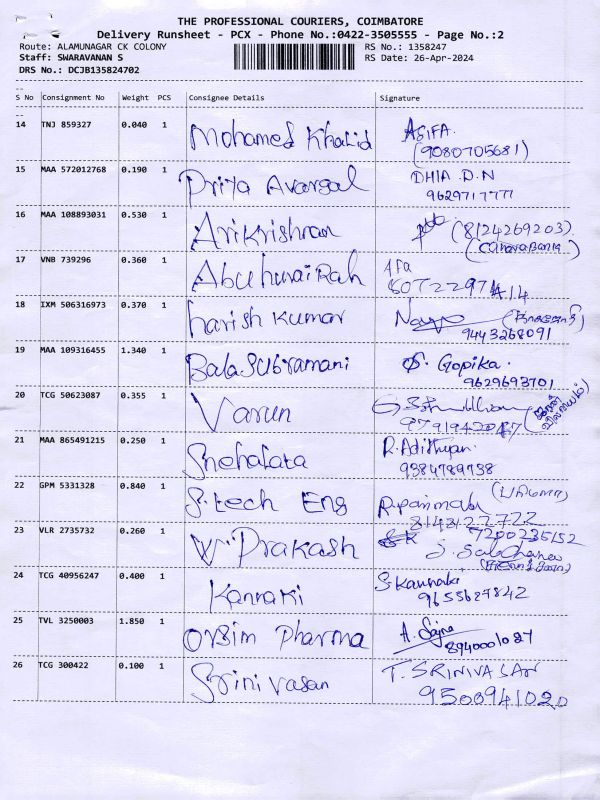 THE PROFESSIONAL COURIERS, COIMBATORE
Delivery Runsheet - PCX - Phone No.:0422-3505555 - Page No.:2
Route: ALAMUNAGAR CK COLONY RS No.: 1358247
Staff: SWARAVANAN S RS Date: 26-Apr-2024
DRS No.: DCJB135824702
S No Consignment No Weight PCS Consignee Details Signature
14 TNJ 859327 0.040 1 Mohamed Khalid ASIFA.
(9080705681)
15 MAA 572012768 0.190 1 Priya Avargal DHIA D.N
9629717777
16 MAA 108893031 0.530 1 Arikrishnan (8124269203)
17 VNB 739296 0.360 1 Abuhurairah Afa
18 IXM 506316973 0.370 1 harish kumar
9443268091
19 MAA 109316455 1.340 1 Bala.Subramani S. Gopika.
9629693701
20 TCG 50623087 0.355 1 Varun
21 MAA 865491215 0.250 1 Snehalata R.Adithyan
9384789738
22 GPM 5331328 0.840 1 S.tech Eng
23 VLR 2735732 0.260 1 V. Prakash 7200235152
24 TCG 40956247 0.400 1 Kannaki S.Kannaki
9655627842
25 TVL 3250003 1.850 1 Orbim Pharma A. Sajna
8940001087
26 TCG 300422 0.100 1 Srinivasan T. SRINIVASAN
9500941020